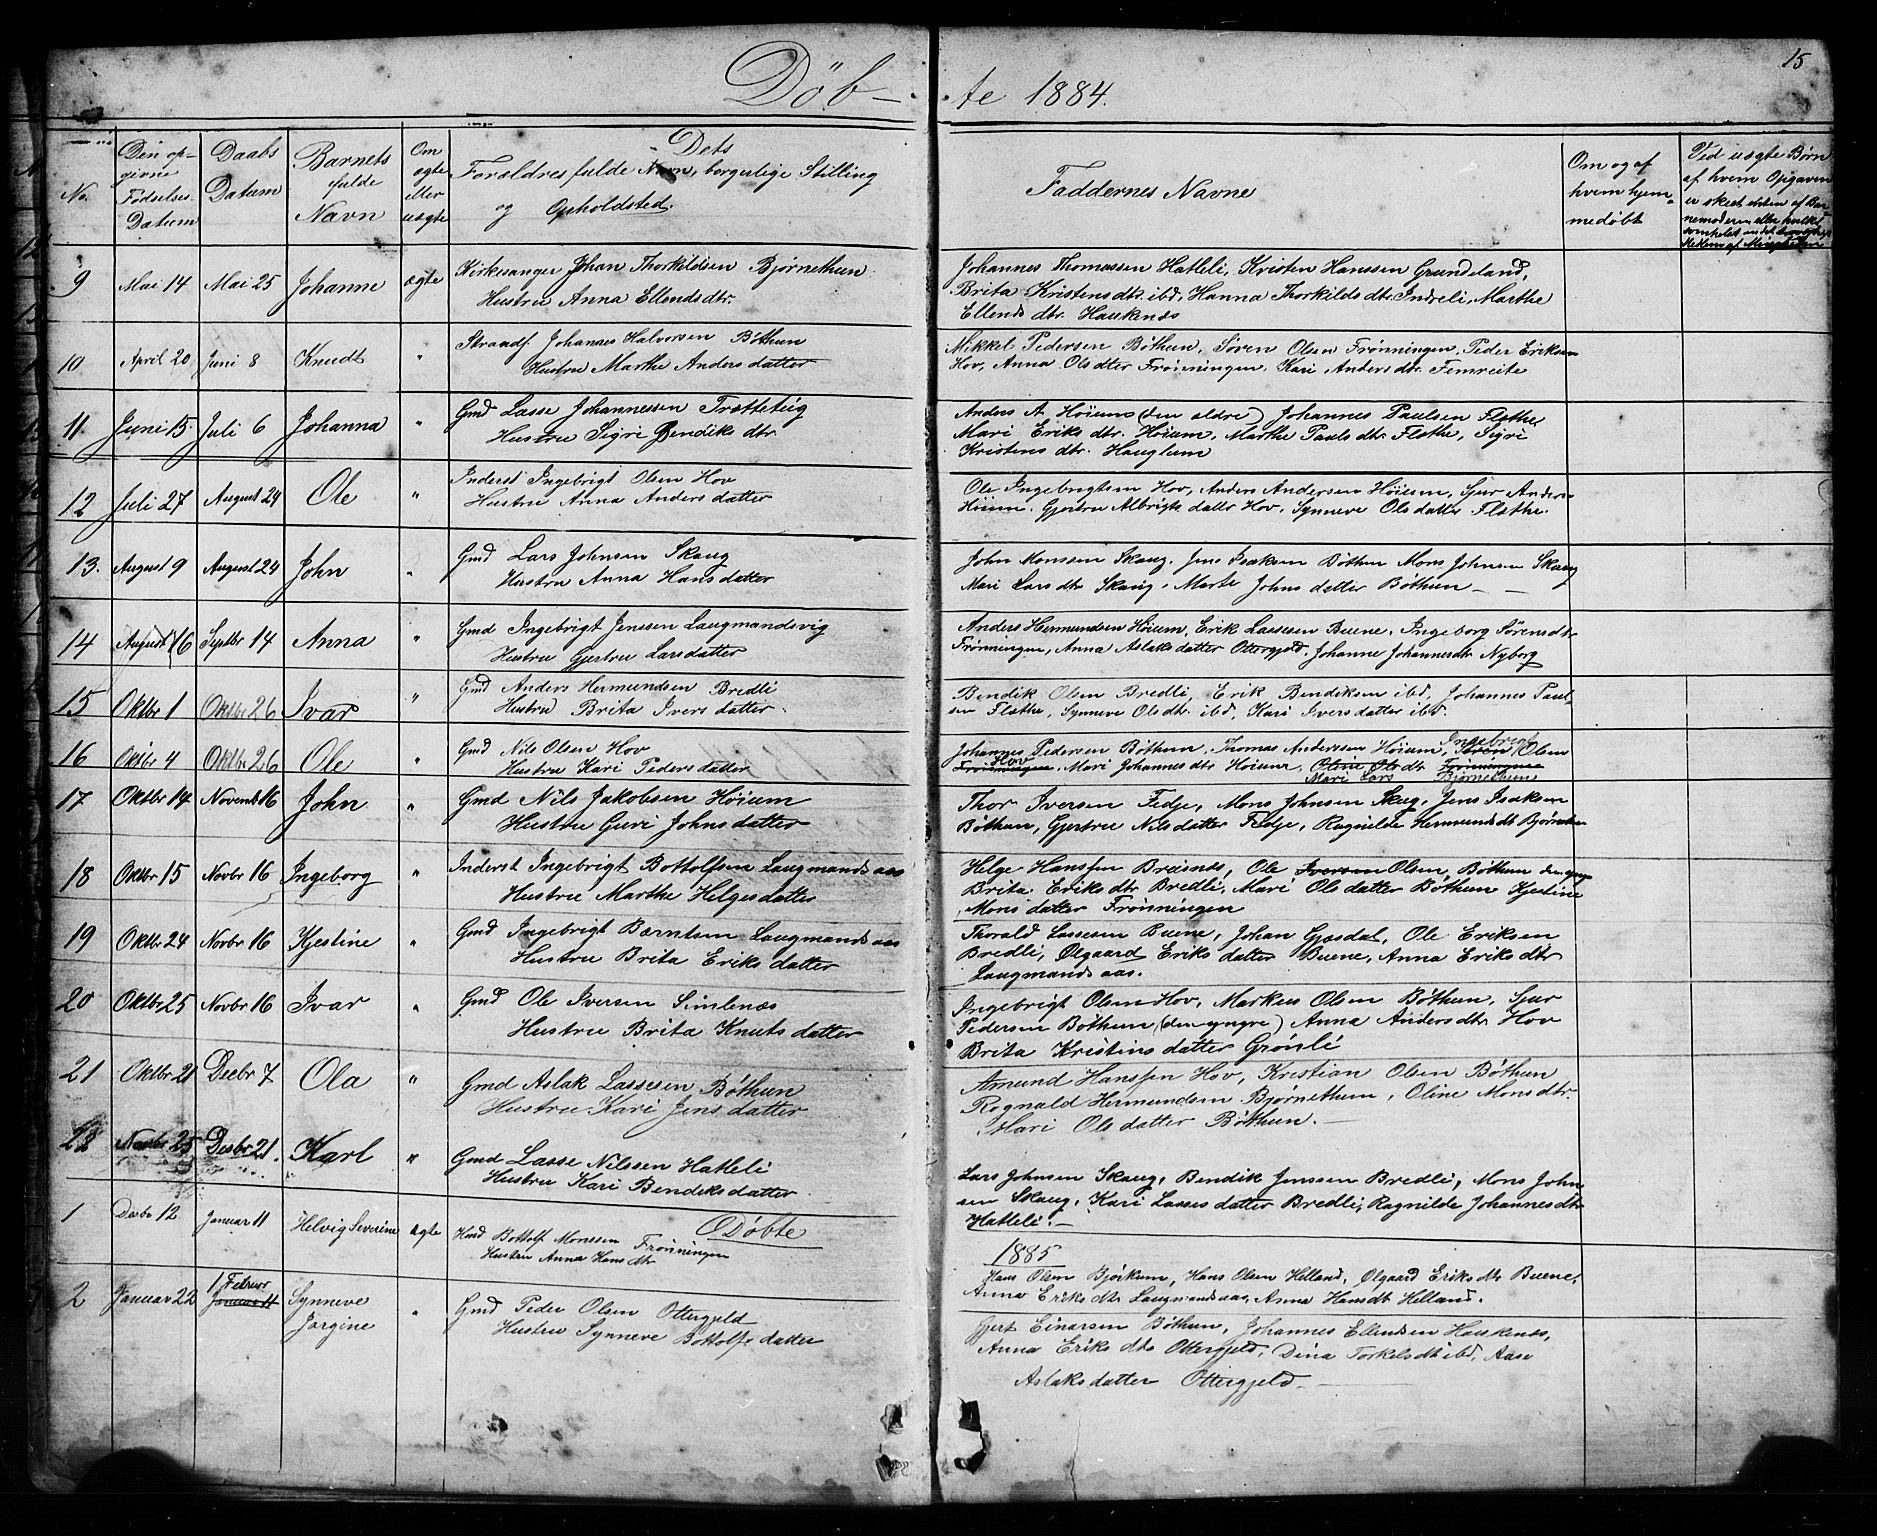 15
Döb-
te 1884.
No.
Den op-
givne
Fødselses
Datum
Daabs
Datum
Barnets
fulde
Navn
Om
ægte
eller
uægte
Dets
Forældres fulde Navn, borgerlige Stilling
og Opholdsted.
Faddernes Navne
Om og af
hvem hjem-
medøbt
Ved uægte Børn
af hvem Opgaven
er skeet enten af Bar-
nemoderen eller hvilket
9 Mai 14 Mai 25 Johanne ægte Kirkesanger Johan Thorkildsen Bjørnethun
Hustru Anna Ellendsdtr.
Johannes Thomassen Hatleli, Kristen Hanssen Grundeland,
Brita Kristensdtr. ibd, Hanna Thorkildsdtr. Indreli, Marthe
Ellendsdtr. Haukenæs
10 April 20 Juni 8 Knudt " Strandf. Johannes Halvorsen Bøthun
Hustru Marthe Andersdatter
Mikkel Pedersen Bøthun, Søren Olsen Frønningen, Peder Eriksen
Hov, Anna Olsdtter Frønningen, Kari Andersdtr. Fimreite
11 Juni 15. Juli 6 Johanna " Gmd Lasse Johannessen Trætteteig
Hustru Sigri Bendiksdtr.
Anders A. Høium (den ældre) Johannes Paulsen Flæthe,
Mari Eriksdtr. Høium, Marthe Paulsdtr. Flæthe, Sigri
Kristensdtr. Hauglum
12 Juli 27 August 24 Ole " Inderst Ingebrigt Olsen Hov
Hustru Anna Andersdatter
Ole Ingebrigtsen Hov, Anders Andersen Høium, Sjur Anders-
Høium. Gjertru Albrigtsdattr Hov, Synneve Olsdatter Flæthe.
13. August 9 August 24 John " Gmd Lars Johnsen Skaug
Hustru Anna Hansdatter
John Monssen Skaug, Jens Isaksen Bøthun Mons Johnsen Skaug
Mari Larsdtr Skaug, Marte Johnsdatter Bøthun —
14 August 16 Septbr 14 Anna " Gmd Ingebrigt Jenssen Laugmandsvig
Hustru Gjertru Larsdatter
Anders Hermundsen Høium, Erik Lassesen Buene, Ingeborg Sørensdtr
Frønningen, Anna Aslaksdatter Ottergjeld, Johanne Johannesdtr Nyborg
15 Oktbr 1 Oktbr 26 Ivar " Gmd Anders Hermundsen Bredli
Hustru Brita Iversdatter
Bendik Olsen Bredli, Erik Bendiksen ibd, Johannes Paul-
sen Flæthe, Synneve Olsdtr. ibd, Kari Iversdatter ibd.
16 Oktbr 4 Oktbr 26 Ole " Gmd Nils Olsen Hov
Hustru Kari Pedersdatter
Ingebrigt
Johannes Pedersen Bøthun, Thomas Anderssen Høium, Søren Olsen
Hov
Frønningen, Mari Johannesdtr Høium, Oline Olsdtr Frønningen
Mari Lars Bjørnethun
17 Oktbr 14 Novembr 16 John " Gmd Nils Jakobsen Høium
Hustru Guri Johnsdatter
Thor Iversen Fedje, Mons Johnsen Skaug, Jens Isaksen
Bøthun, Gjertru Nilsdatter Fedje, Ragnilde Hermundsdt Bjørnethun
18 Oktbr 15 Novbr 16 Ingeborg " Inderst Ingebrigt Bottolfsen Laugmandsaas
Hustru Marthe Helgesdatter
Helge Hanssen Breisnes, Ole Iversen Olsen, Bøthun den yngre
Brita Eriksdtr Bredli, Mari Olsdatter Bøthun Kjestine
Monsdatter Frønningen
19 Oktbr 24 Novbr 16 Kjestine " Gmd Ingebrigt Berntsen Laugmandsaas
Hustru Brita Eriksdatter
Thorald Lassesen Buene, Johan Gjesdal, Ole Eriksen
Bredli, Ølgaard Eriksdatter Buene, Anna Eriksdtr
Laugmandsaas.
20 Oktbr 25 Novbr 16 Ivar " Gmd Ole Iversen Simlenæs
Hustru Brita Knutsdatter
Ingebrigt Olsen Hov, Markus Olsen Bøthun, Sjur
Pedersen Bøthun (den yngre) Anna Andersdtr Hov
Brita Kristinsdatter Grønli
21 Oktbr 21 Decbr 7 Ola " Gmd Aslak Lassesen Bøthun
Hustru Kari Jensdatter
Amund Hanssen Hov, Kristian Olsen Bøthun
Rognald Hermundsen Bjørnethun, Oline Monsdtr.
Mari Olsdatter Bøthun. —
22 Novbr 25 Desbr 21. Karl " Gmd Lasse Nilssen Hatleli
Hustru Kari Bendiksdatter
Lars Johnsen Skaug, Bendik Jenssen Bredli, Mons John
sen Skaug, Kari Lassesdatter Bredli, Ragnilde Johannesdtr
Hatleli. —
Døbte
1885
1 Desbr 12 Januar 11 Helvig Severine ægte Hmd Bottolf Monssen Frønningen
Hustru Anna Hansdtr
Hans Olsen Bjørkum, Hans Olsen Helland, Ølgaard Eriksdtr Buene,
Anna Eriksdtr Laugmandsaas, Anna Hansdt Helland.
2 Januar 22 1 Februar
Januar 11 Synneve
Jørgine " Gmd Peder Olsen Ottergjeld
Hustru Synneve Bottolfsdatter
Gjert Einarsen Bøthun, Johannes Ellendsen Haukenæs,
Anna Eriksdtr Ottergjeld, Dina Torkelsdt ibd, Aase
Aslaksdatter Ottergjeld. —